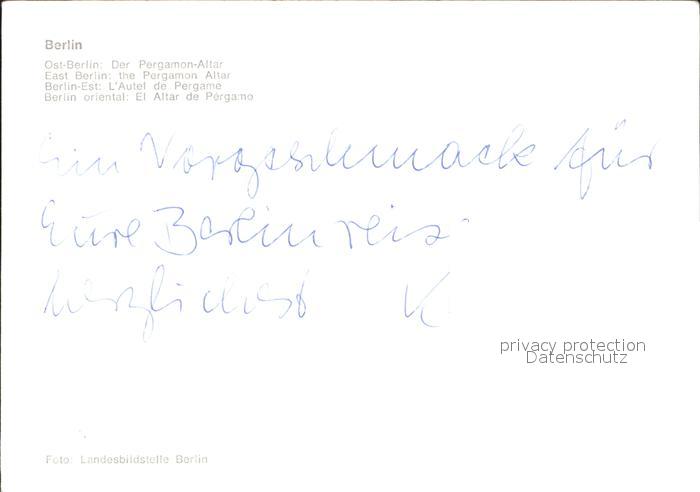 Berlin
Ost-Berlin: Der Pergamon-Altar
East Berlin: the Pergamon Altar
Berlin-Est: L'Autel de Pergame
Berlin oriental: El Altar de Pérgamo
Ein Vorgeschmack für
Eure Berlinreise
herzlichst K
privacy protection
Datenschutz
Foto: Landesbildstelle Berlin